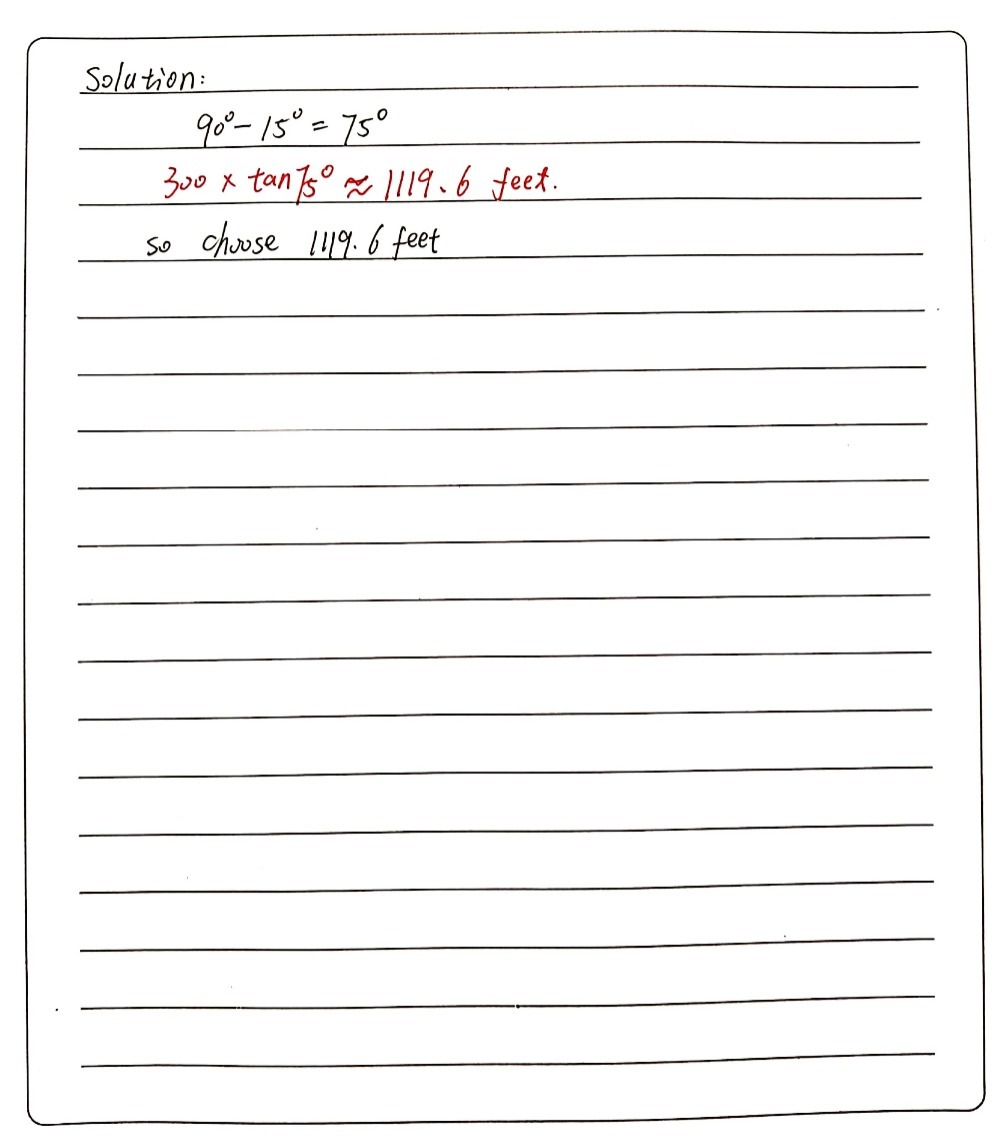 Solution:
90° - 15° = 75°
300 × tan75° ≈ 1119.6 feet.
so choose 1119.6 feet